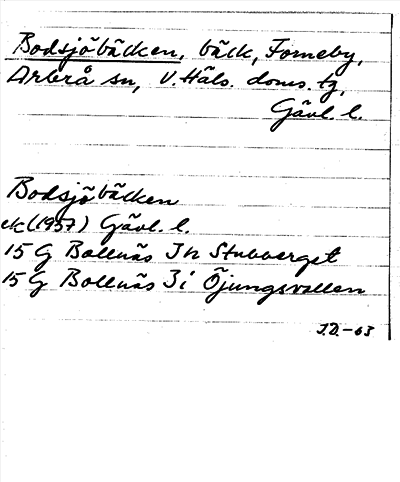 Bodsjöbäcken, bäck, Forneby,
Arbrå sn, V. Häls. doms. tg,
Gävl. l.
Bodsjöbäcken
ek (1957) Gävl. l.
15 G Bollnäs 3h Stubberget
15 G Bollnäs 3i Öjungsvallen
J.D. -63